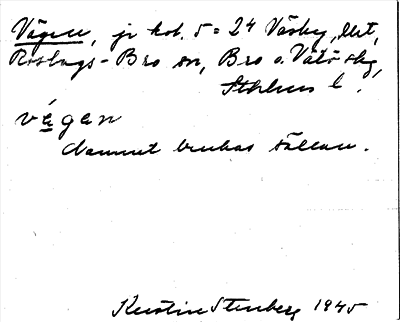 Vägen, jr kol. 5 = 2⁴ Väsby, Ält,
Roslags-Bro sn, Bro o. Vätö skg,
Sthlms l.
vägan
Namnet brukas sällan.
Kerstin Stenberg 1945